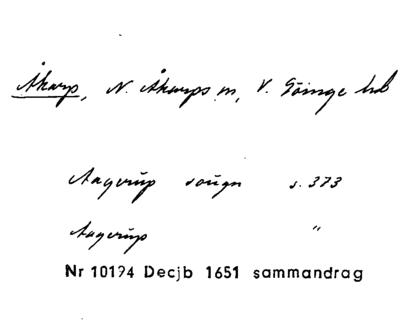 Åkarp, N. Åkarps sn, V. Göinge hd
Aagerup sougn s. 373
Aagerup "
Nr 10194 Decjb 1651 sammandrag